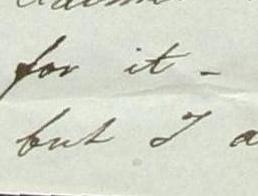 for it -
but I a